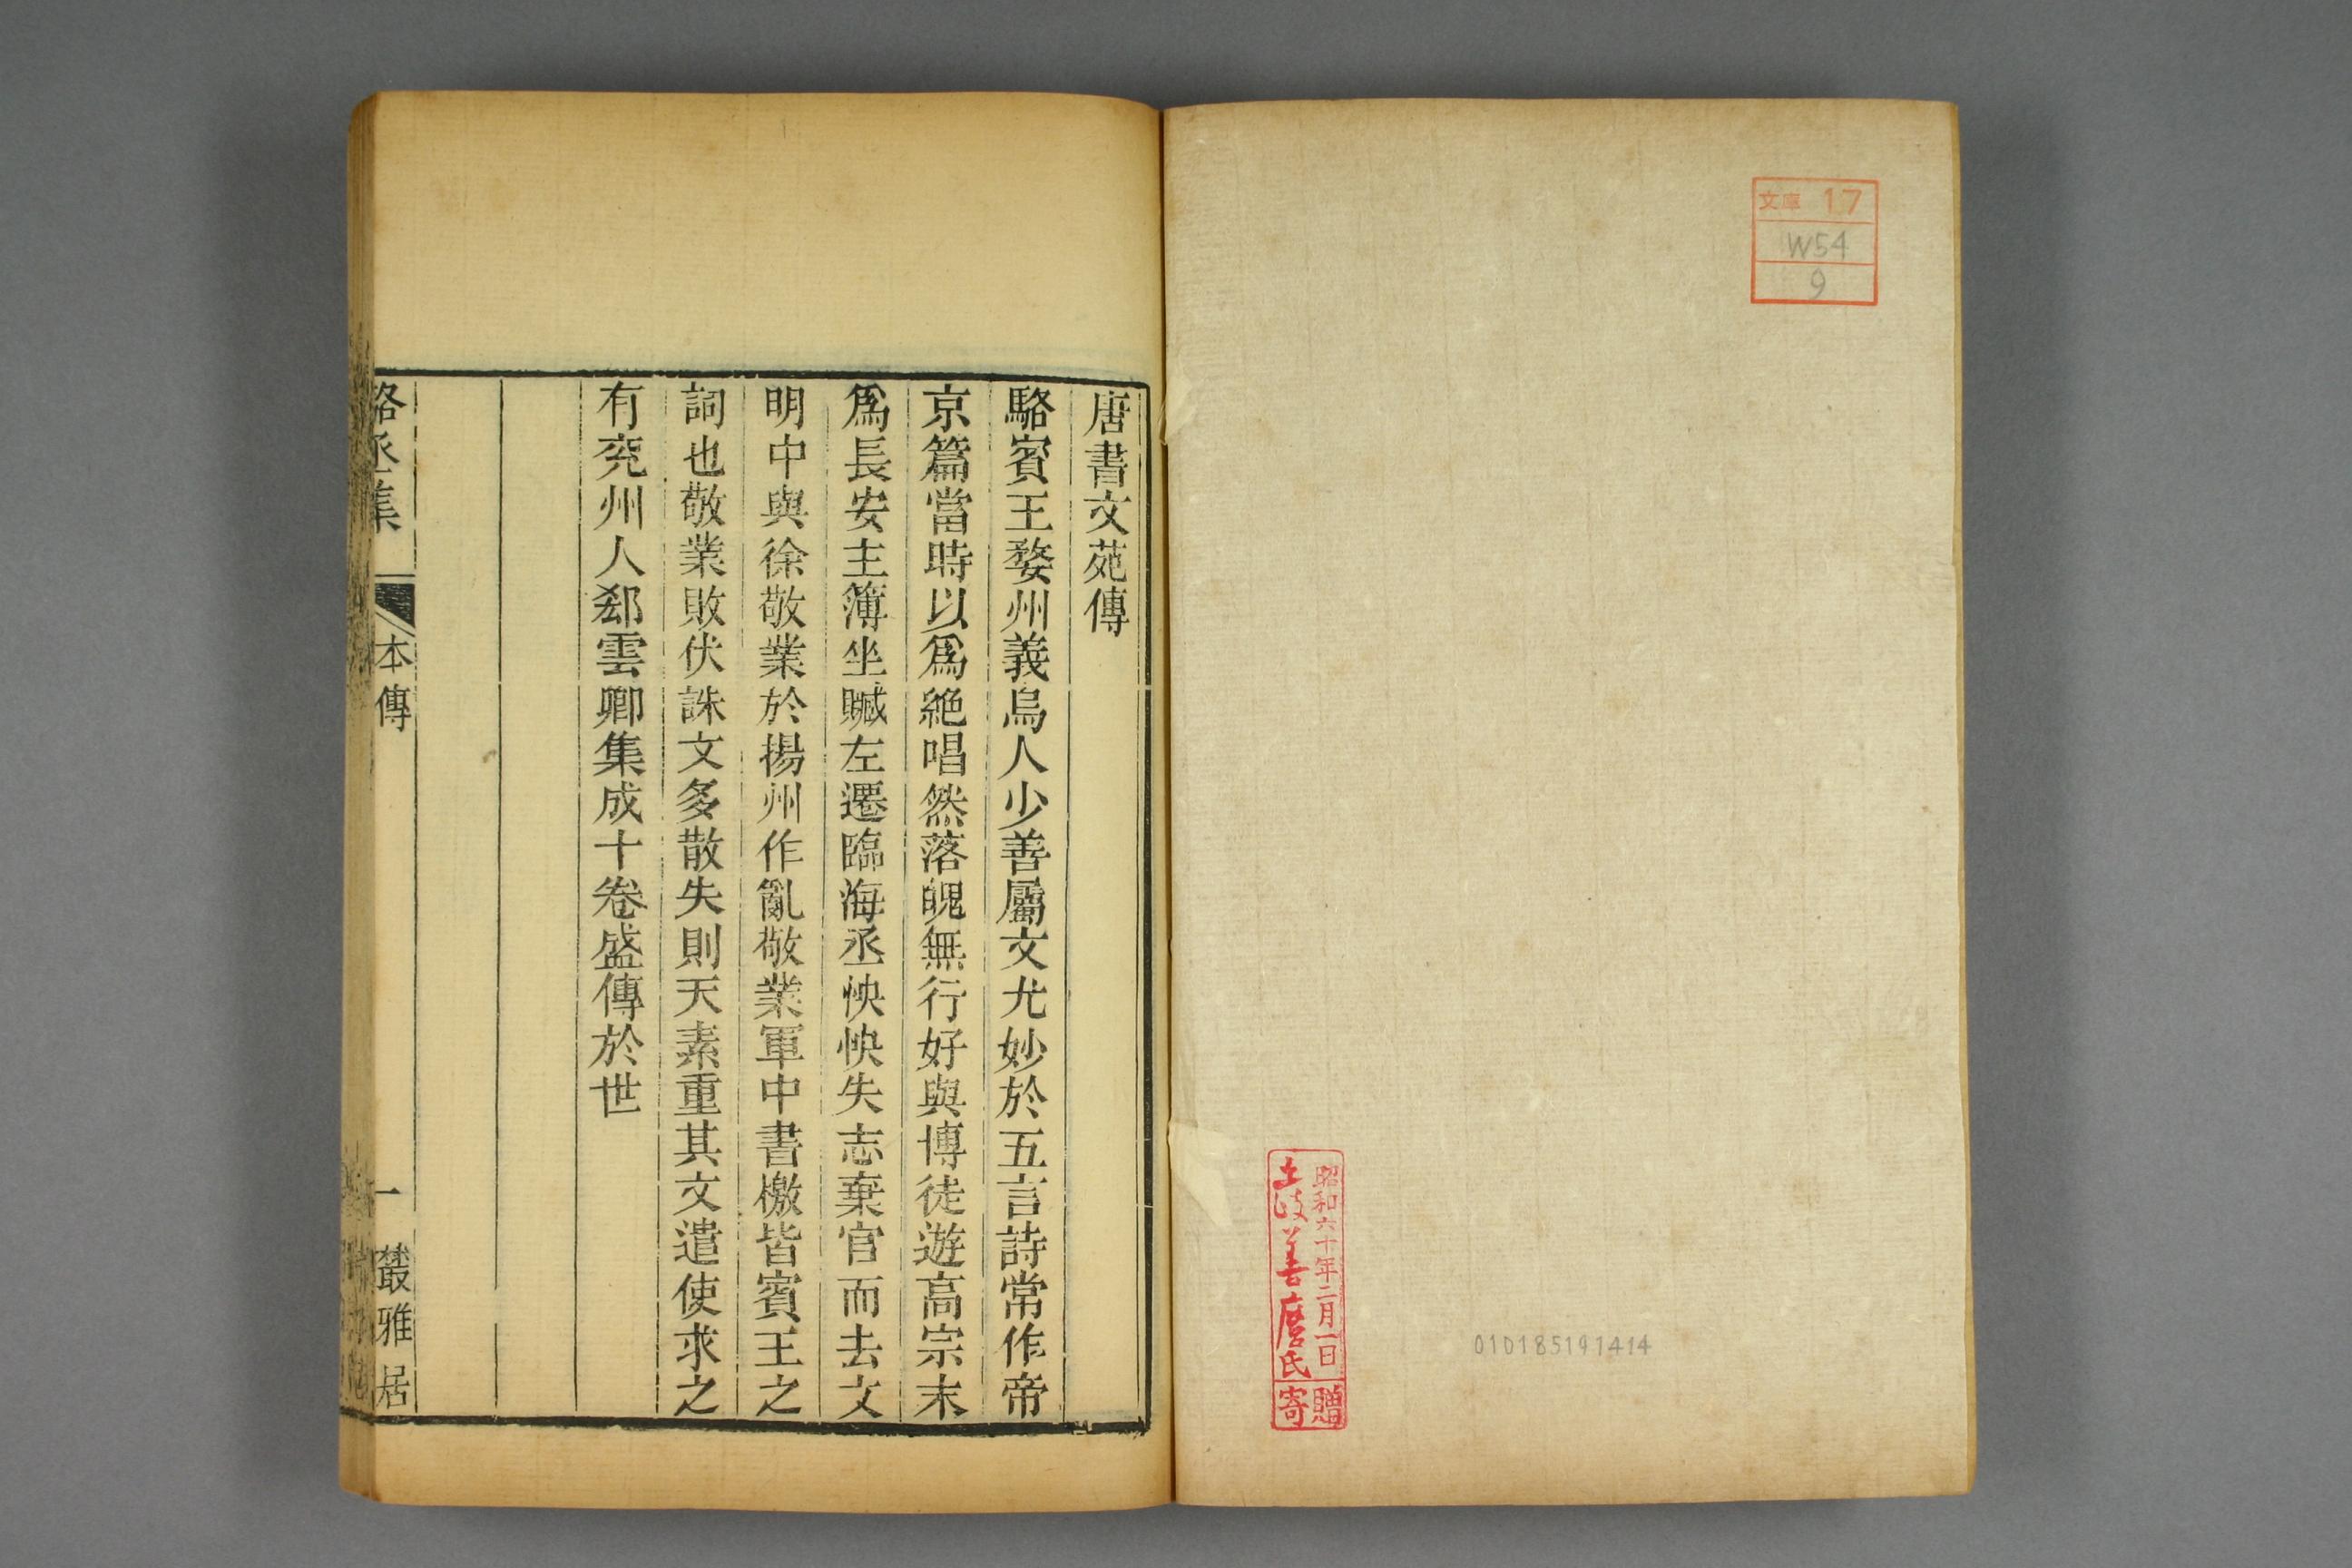 文庫 17
W54
9
昭和六十年二月一日
土岐善麿氏
寄贈
010185191414
唐書文苑傳
駱賓王婺州義烏人少善屬文尤妙於五言詩常作帝
京篇當時以爲絶唱然落魄無行好與博徒遊高宗末
爲長安主簿坐贓左遷臨海丞怏怏失志棄官而去文
明中與徐敬業於揚州作亂敬業軍中書檄皆賓王之
詞也敬業敗伏誅文多散失則天素重其文遣使求之
有兖州人郄雲卿集成十卷盛傳於世
駱丞集 本傳 一 叢雅居